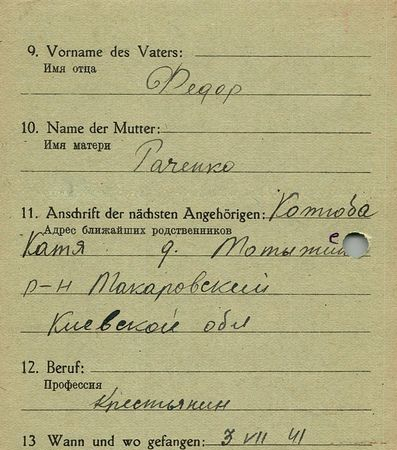 9. Vorname des Vaters:
Имя отца
Федор
10. Name der Mutter:
Имя матери
Раченко
11. Anschrift der nächsten Angehörigen: Котюба
Адрес ближайших родственников
Катя д. Мотыжин
р-н Макаровский
Киевской обл
12. Beruf:
Профессия
Крестьянин
13 Wann und wo gefangen: 3 VII 41